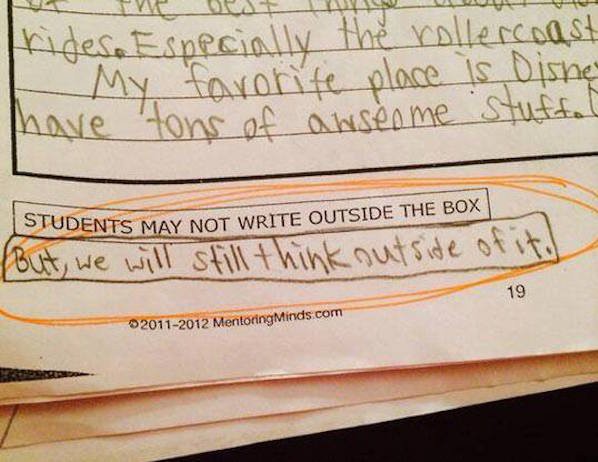 of the best things about
rides. Especially the rollercoast
My favorite place is Disne
have tons of awseome stuff.
STUDENTS MAY NOT WRITE OUTSIDE THE BOX
But, we will still think outside of it.
19
©2011-2012 MentoringMinds.com